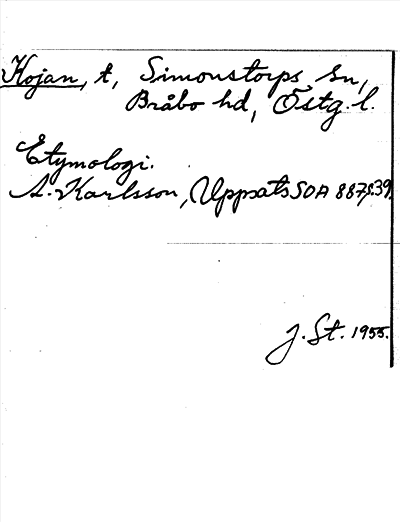 Kojan, t, Simonstorps sn,
Bråbo hd, Östg. l.
Etymologi.
A. Karlsson, Uppsats SOA 887, s. 39.
J. St. 1955.